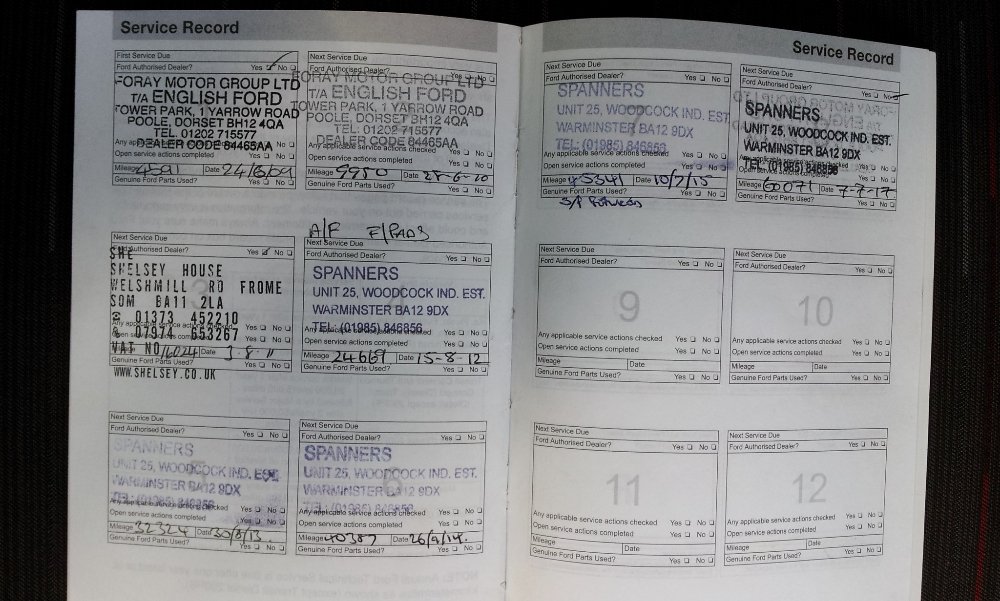 Service Record
First Service Due
Ford Authorised Dealer? Yes No
FORAY MOTOR GROUP LTD
T/A ENGLISH FORD
TOWER PARK, 1 YARROW ROAD
POOLE, DORSET BH12 4QA
TEL: 01202 715577
DEALER CODE 84465AA
Any applicable service actions checked
Open service actions completed Yes No
Mileage Date
Genuine Ford Parts Used? Yes No
Next Service Due
Ford Authorised Dealer? Yes No
FORAY MOTOR GROUP LTD
T/A ENGLISH FORD
TOWER PARK, 1 YARROW ROAD
POOLE, DORSET BH12 4QA
TEL: 01202 715577
DEALER CODE 84465AA
Any applicable service actions checked
Open service actions completed Yes No
Mileage 9980 Date 28-6-10
Genuine Ford Parts Used? Yes No
Next Service Due
Ford Authorised Dealer? Yes No
SHE
SHELSEY HOUSE
WELSHMILL RD FROME
SOM BA11 2LA
01373 452210
07974 653267
VAT NO
Any applicable service actions checked
Open service actions completed
Date 3.8.11
Genuine Ford Parts Used? Yes No
WWW.SHELSEY.CO.UK
A/F F/PADS
Next Service Due
Ford Authorised Dealer? Yes No
SPANNERS
UNIT 25, WOODCOCK IND. EST.
WARMINSTER BA12 9DX
TEL: (01985) 846856
Any applicable service actions checked
Open service actions completed Yes No
Mileage 24669 Date 15-8-12
Genuine Ford Parts Used? Yes No
Next Service Due
Ford Authorised Dealer? Yes No
SPANNERS
UNIT 25, WOODCOCK IND. EST.
WARMINSTER BA12 9DX
TEL: (01985) 846856
Any applicable service actions checked
Open service actions completed Yes No
Mileage 32324 Date 30/8/13
Genuine Ford Parts Used? Yes No
Next Service Due
Ford Authorised Dealer? Yes No
SPANNERS
UNIT 25, WOODCOCK IND. EST.
WARMINSTER BA12 9DX
TEL: (01985) 846856
Any applicable service actions checked
Open service actions completed Yes No
Mileage 40387 Date 26/9/14.
Genuine Ford Parts Used? Yes No
Service Record
Next Service Due
Ford Authorised Dealer? Yes No
7
SPANNERS
UNIT 25, WOODCOCK IND. EST.
WARMINSTER BA12 9DX
TEL: (01985) 846856
Any applicable service actions checked
Open service actions completed Yes No
Mileage 45341 Date 10/7/15
Genuine Ford Parts Used? Yes No
Next Service Due
Ford Authorised Dealer? Yes No
SPANNERS
UNIT 25, WOODCOCK IND. EST.
WARMINSTER BA12 9DX
TEL: (01985) 846856
Any applicable service actions checked
Open service actions completed Yes No
Mileage 60071 Date 7-7-17
Genuine Ford Parts Used? Yes No
Next Service Due
Ford Authorised Dealer? Yes No
9
Any applicable service actions checked Yes No
Open service actions completed Yes No
Mileage Date
Genuine Ford Parts Used? Yes No
Next Service Due
Ford Authorised Dealer? Yes No
10
Any applicable service actions checked Yes No
Open service actions completed Yes No
Mileage Date
Genuine Ford Parts Used? Yes No
Next Service Due
Ford Authorised Dealer? Yes No
11
Any applicable service actions checked Yes No
Open service actions completed Yes No
Mileage Date
Genuine Ford Parts Used? Yes No
Next Service Due
Ford Authorised Dealer? Yes No
12
Any applicable service actions checked Yes No
Open service actions completed Yes No
Mileage Date
Genuine Ford Parts Used? Yes No